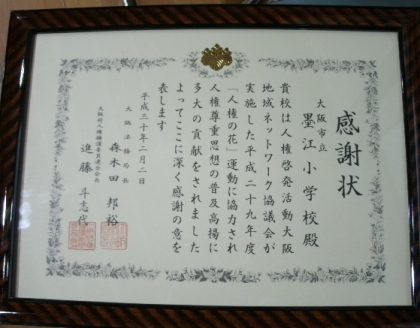 感謝状
大阪市立
墨江小学校殿
貴校は人権啓発活動大阪
地域ネットワーク協議会が
実施した平成二十九年度
「人権の花」運動に協力され
人権尊重思想の普及高揚に
多大の貢献をされました
よってここに深く感謝の意を
表します
平成三十年二月二日
大阪法務局長
森木田邦裕
大阪府人権擁護委員連合会長
進藤斗志代